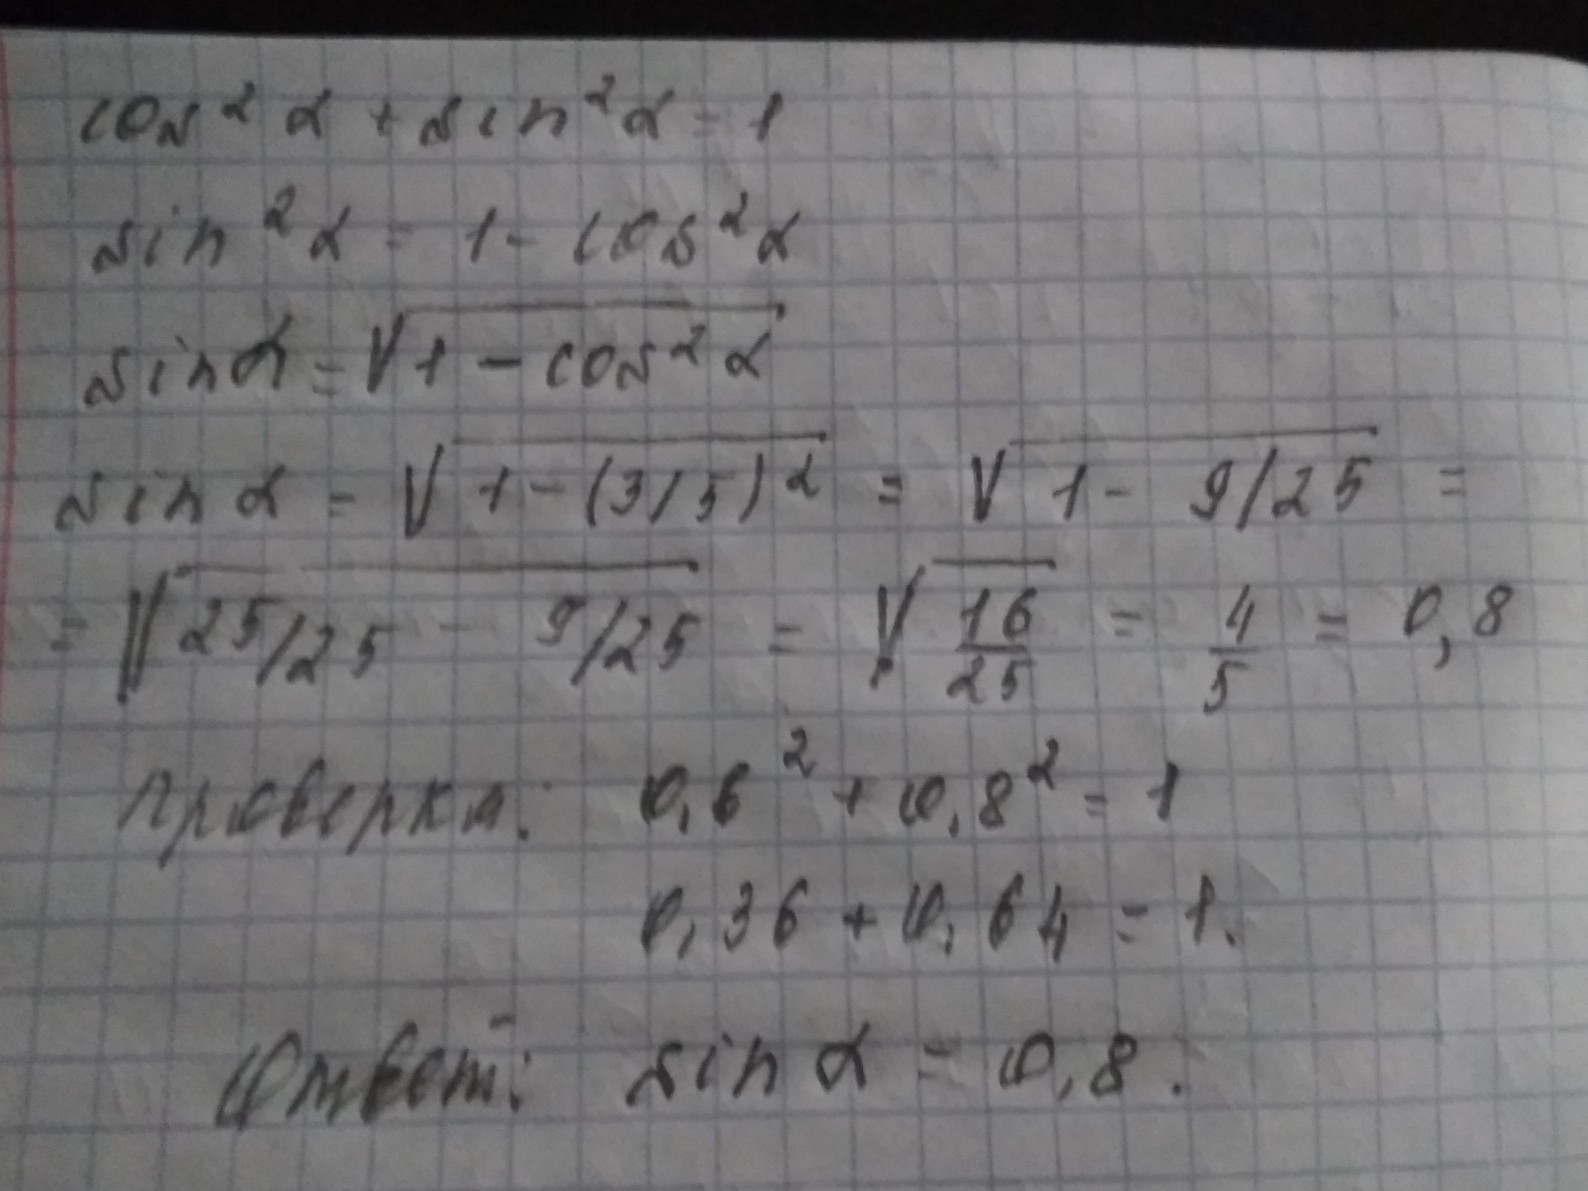 cos²α + sin²α = 1
sin²α = 1 - cos²α
sinα = √1 - cos²α
sin α = √1 - (3/5)² = √1 - 9/25 =
= √25/25 - 9/25 = √16/25 = 4/5 = 0,8
Проверка: 0,6² + 0,8² = 1
0,36 + 0,64 = 1.
Ответ: sin α = 0,8.